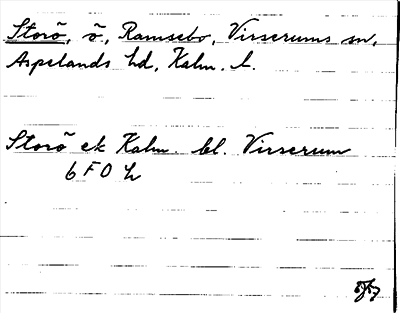 Storö, ö, Ramsebo, Virserums sn,
Aspelands hd, Kalm. l.
Storö ek Kalm. bl. Virserum
6 F 0 h